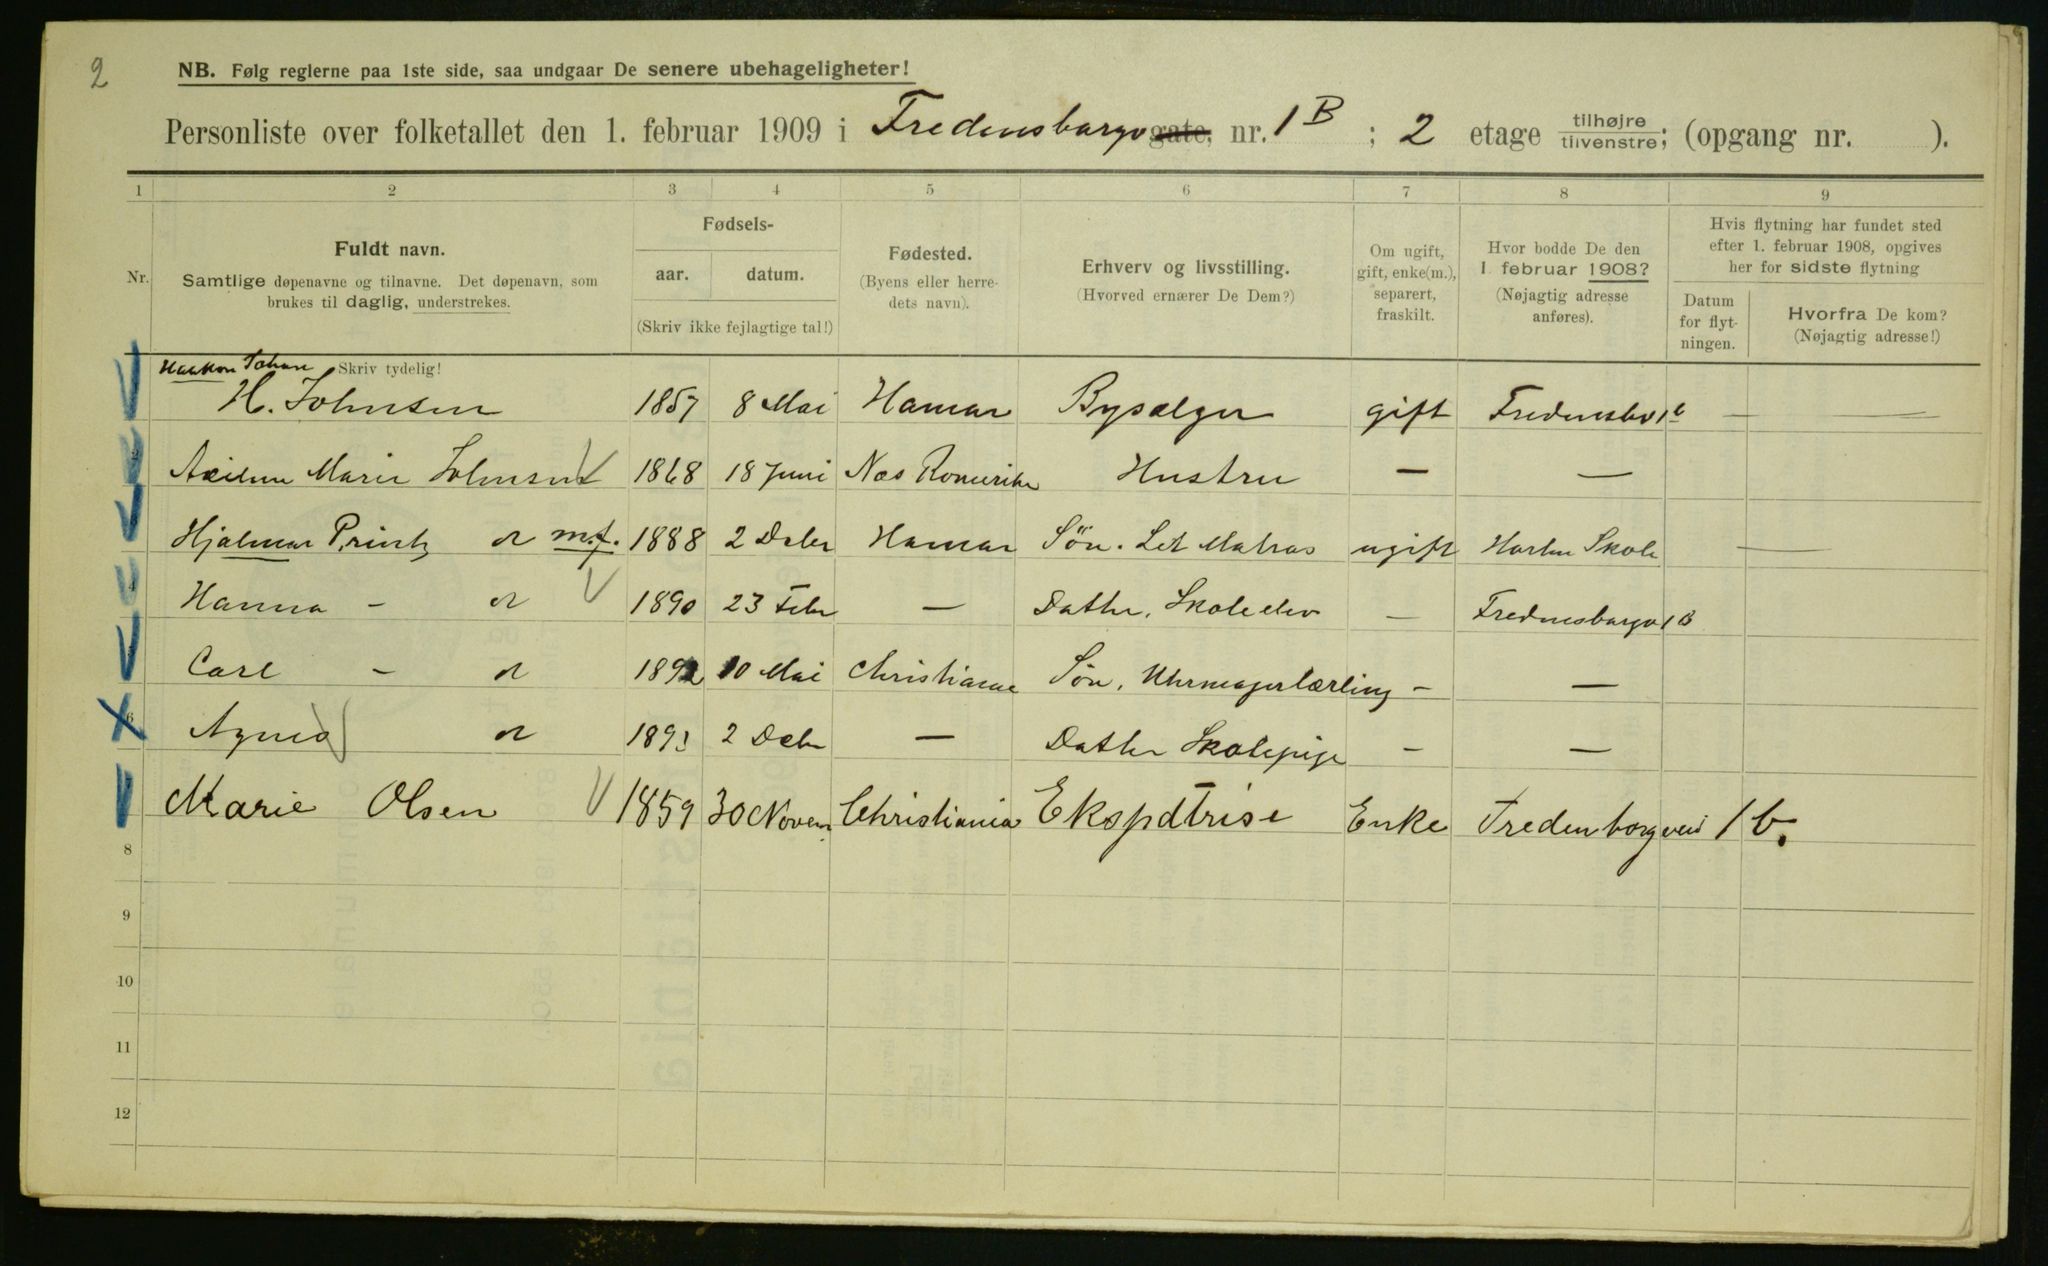 2
NB. Følg reglerne paa 1ste side, saa undgaar De senere ubehageligheter!
Personliste over folketallet den 1. februar 1909 i Fredensborgv gate, nr. 1B ; 2 etage tilhøjre tilvenstre; (opgang nr. ).
1 2 3 4 5 6 7 8 9
Nr.
Fuldt navn.
Samtlige døpenavne og tilnavne. Det døpenavn, som
brukes til daglig, understrekes.
Fødsels-
aar. datum.
(Skriv ikke fejlagtige tal!)
Fødested.
(Byens eller herre-
dets navn).
Erhverv og livsstilling.
(Hvorved ernærer De Dem?)
Om ugift,
gift, enke(m.),
separert,
fraskilt.
Hvor bodde De den
1 februar 1908?
(Nøjagtig adresse
anføres).
Hvis flytning har fundet sted
efter 1. februar 1908, opgives
her for sidste flytning
Datum
for flyt-
ningen.
Hvorfra De kom?
(Nøjagtig adresse!)
Haakon Johan Skriv tydelig!
H. Johnsen 1857 8 Mai Hamar Bysælger gift — —
Marie Johnsen 1868 18 Juni Næs Romerike Hustru — —
Hjalmar Printz do m.f. 1888 2 Debr Hamar Søn. ugift Skole —
4 Hanna - do 1890 23 Febr — Datter, Skoleelev — Fredensborgv 1B
5 Carl - do 10 Mai Christiania Søn, Uhrmagerlærling - —
6 Agnes do 2 Debr — Datter Skolepige - —
Marie Olsen 1859 30 Novem Christiania Ekspdtrise Enke Fredenborgveii 1b.
8
9
10
11
12